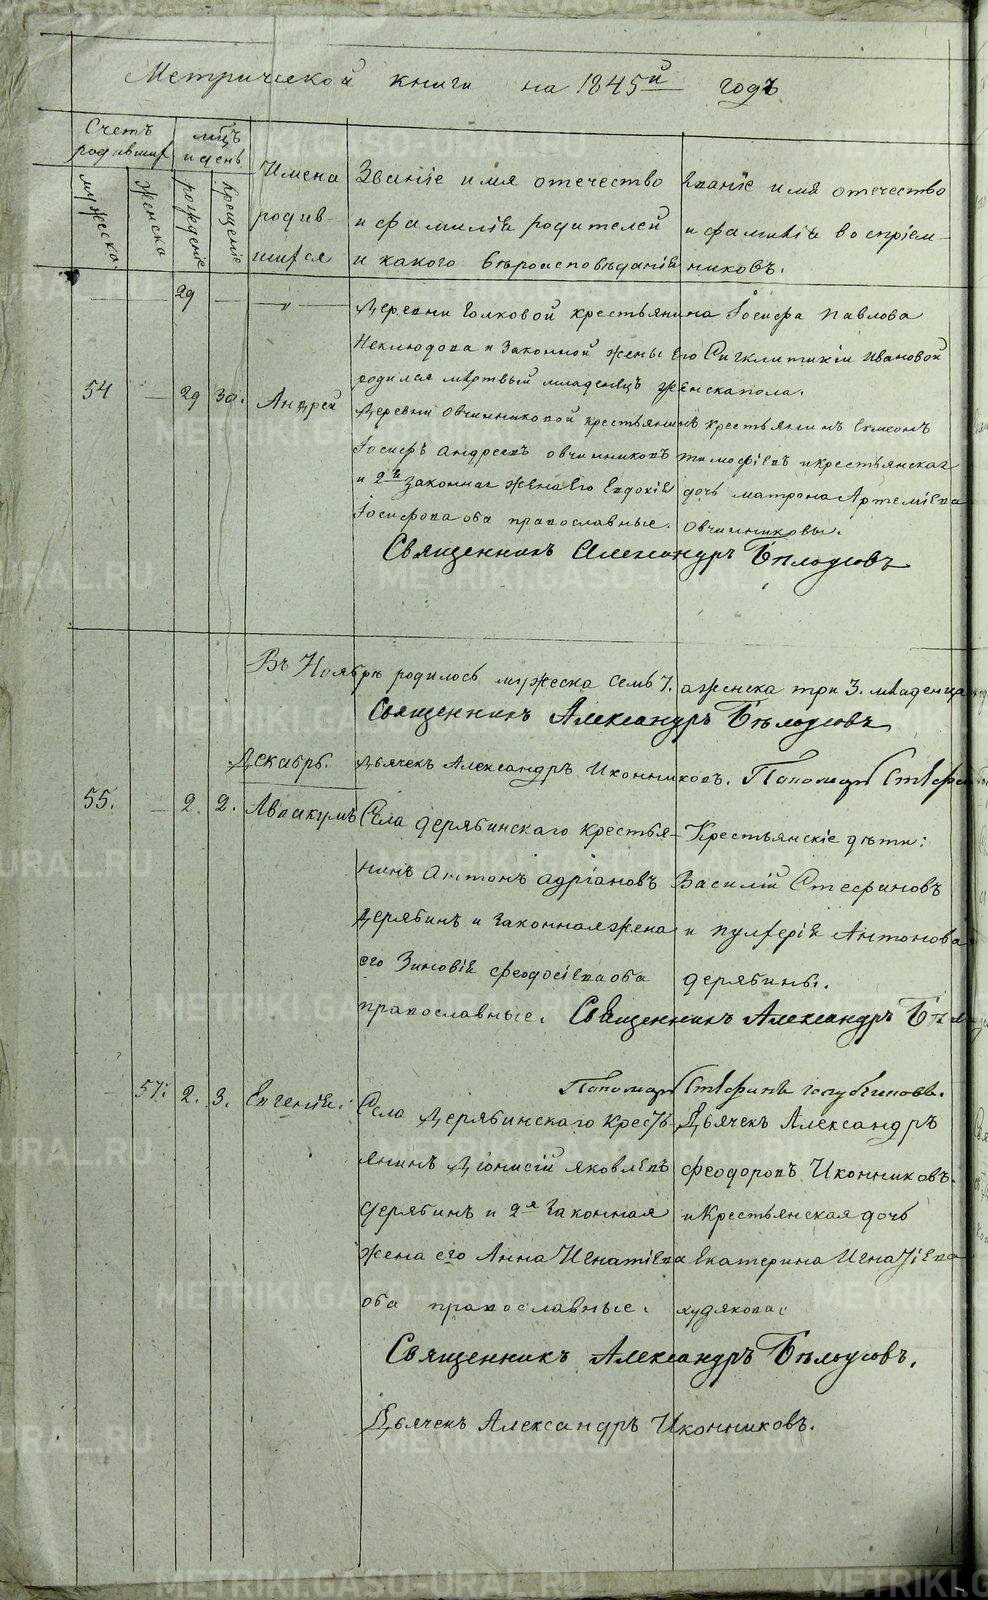 Метрической книги на 1845й годъ
Счетъ родившихся
мцъ и день
Имена родившихся
Званіе имя отечество и фамиліи родителей и какого вѣроисповѣданія
Званіе имя отечество и фамиліи воспріемниковъ.
мужеска.
женска
рожденіе
крещеніе
29 — „ —
Деревни Голковой крестьянина Іосифа Павлова
Неклюдова и законной жены его Сигклитикіи Ивановой
родился мертвый младенецъ женска пола.
54 — 29 30. Андрей
Деревни Овчинниковой крестьянинъ
Іосифъ Андреевъ Овчинниковъ
и 2я законная жена его Евдокія
Іосифова оба православные.
Крестьянинъ Симеонъ
Тимофіевъ и крестьянская
дочь Матрона Артеміева
Овчинниковы.
Священникъ Александръ Бѣлоусовъ
Въ Ноябрѣ родилось мужеска семь 7. а женска три 3. младенца
Священникъ Александръ Бѣлоусовъ
Декабрь.
Дьячекъ Александръ Иконниковъ. Пономарь Стефа
55. — 2. 2. Аввакумъ
Села Дерябинскаго крестья-
нинъ Антонъ Адріановъ
Дерябинъ и законная жена
его Зиновія Феодосіева оба
православные.
Крестьянскіе дѣти:
Василій Стефановъ
и Пулхерія Антонова
Дерябины.
Священникъ Александръ Бѣл
Пономарь Стефанъ Голубчиковъ.
— 57. 2. 3. Евгенія.
Села Дерябинскаго кресть-
янинъ Діонисій Яковлевъ
Дерябинъ и 2я законная
жена его Анна Игнатіева
оба православные.
Дьячекъ Александръ
Феодоровъ Иконниковъ.
и Крестьянская дочь
Екатерина Игнатіева
Худякова.
Священникъ Александръ Бѣлоусовъ.
Дьячекъ Александръ Иконниковъ.
METRIKI.GASO-URAL.RU